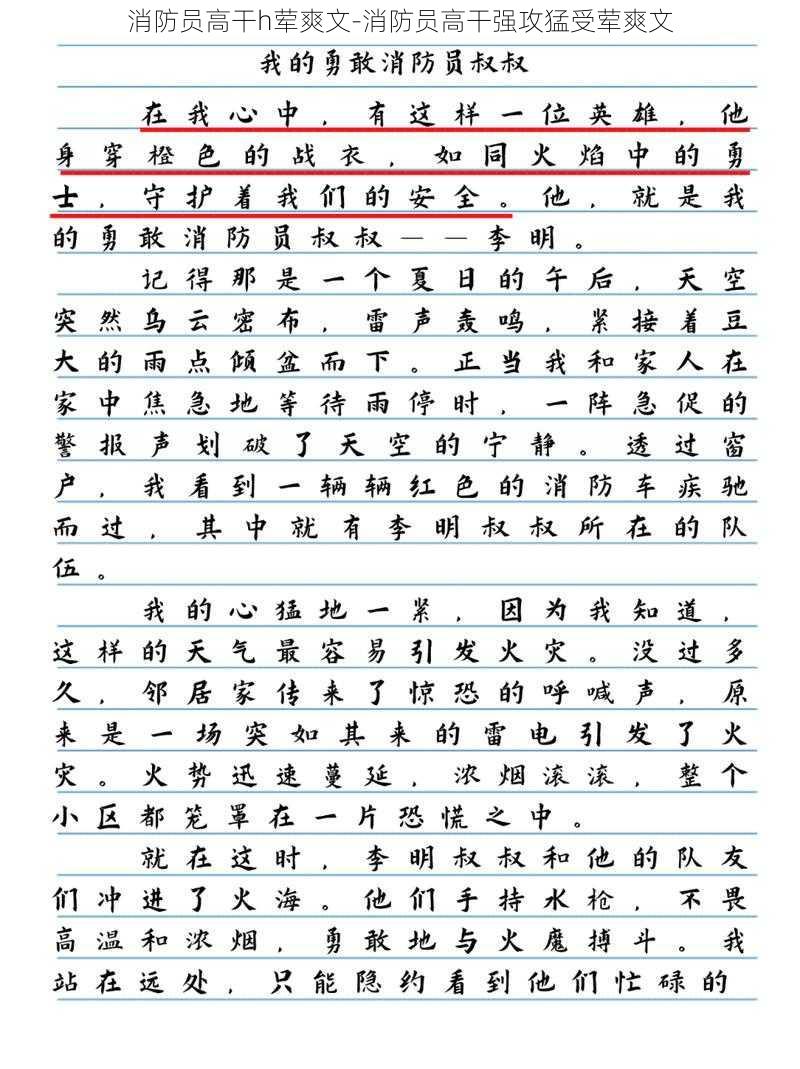 消防员高干h荤爽文-消防员高干强攻猛受荤爽文
我的勇敢消防员叔叔
在我心中，有这样一位英雄，他
身穿橙色的战衣，如同火焰中的勇
士，守护着我们的安全。他，就是我
的勇敢消防员叔叔——李明。
记得那是一个夏日的午后，天空
突然乌云密布，雷声轰鸣，紧接着豆
大的雨点倾盆而下。正当我和家人在
家中焦急地等待雨停时，一阵急促的
警报声划破了天空的宁静。透过窗
户，我看到一辆辆红色的消防车疾驰
而过，其中就有李明叔叔所在的队
伍。
我的心猛地一紧，因为我知道，
这样的天气最容易引发火灾。没过多
久，邻居家传来了惊恐的呼喊声，原
来是一场突如其来的雷电引发了火
灾。火势迅速蔓延，浓烟滚滚，整个
小区都笼罩在一片恐慌之中。
就在这时，李明叔叔和他的队友
们冲进了火海。他们手持水枪，不畏
高温和浓烟，勇敢地与火魔搏斗。我
站在远处，只能隐约看到他们忙碌的